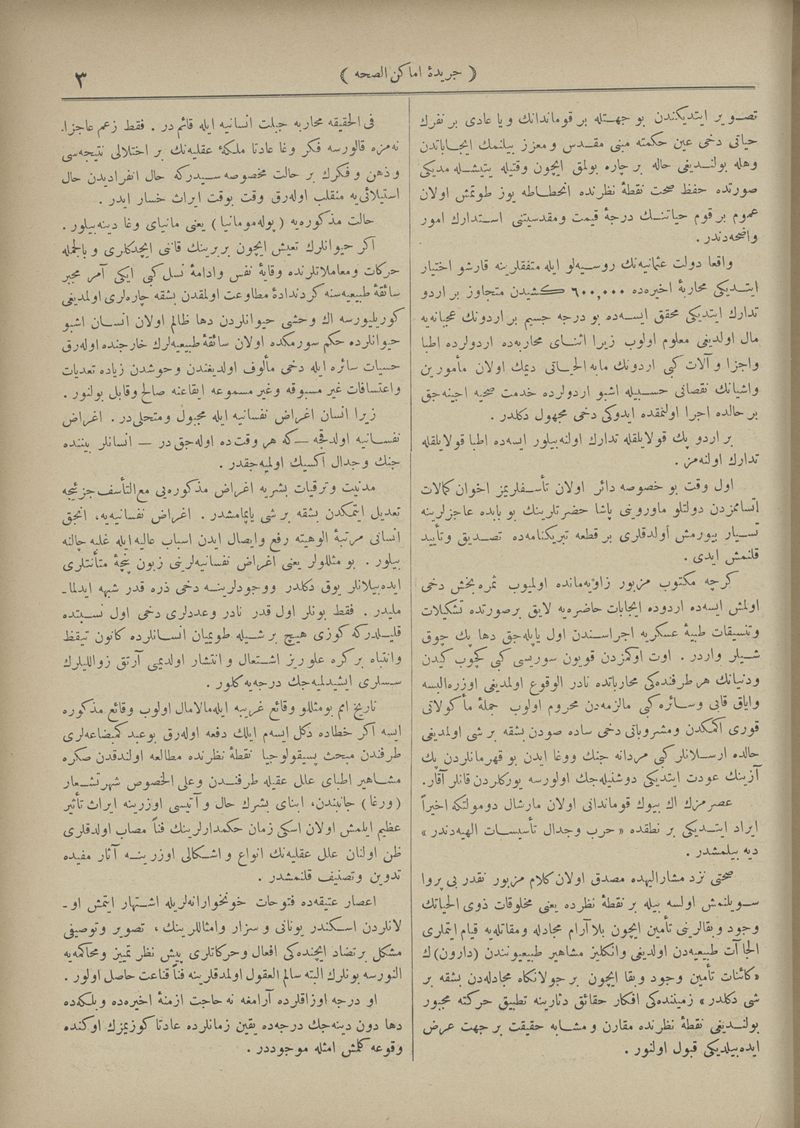 ( جريدۀ اماكن الصحه )
٣
تصوير ايتديكندن بو جهتله بر قوماندانك ويا عادى بر نفرك
حياتى دخى عين حكمته مبنى مقدس و معزز بيلنمك ايجاباتدن
وهله بولنديغى حاله بر چاره بولمق ايچون وقتيله يتيشله مديكى
صورتده حفظ صحت نقطۀ نظرنده انحطاطه يوز طوتمش اولان
عموم بر قوم حياتنك درجۀ قيمت ومقدسيتى استدارك امور
واضحه‌دندر .
واقعا دولت عثمانيه‌نك روسيه‌لو ايله متفقلرينه قارشو اختيار
ايتديكى محاربۀ اخيره‌ده ٦٠٠,٠٠٠ كشيدن متجاوز بر اردو
تدارك ايتديكى محقق ايسه‌ده بو درجه جسيم بر اردونك مجانه‌يه
مال اولديغى معلوم اولوب زيرا اثناى محاربه‌ده اردولرده اطبا
واجزا و آلات كى اردونك مابه الحياتى ديمك اولان مأمورين
واشيانك نقصانى حسبيله اشبو اردولرده خدمت صحيه اجينه‌جق
بر حالده اجرا اولنمقده ايدوكى دخى مجهول دكلدر .
بر اردو پك قولايلقله تدارك اولنه‌بيلور ايسه‌ده اطبا قولايلقله
تدارك اولنه‌مز .
اول وقت بو خصوصه دائر اولان تأسفلريمز اخوان كمالات
اتسامزدن دولتلو ماورويى پاشا حضرتلرينك بو بابده عاجزلرينه
تسيار بيورمش اولدقلرى بر قطعه تبريكنامه‌ده تصديق وتأييد
قلنمش ايدى .
كرچه مكتوب مزبور زاويه‌مانده اولميوب ثمره بخش دخى
اولمش ايسه‌ده اردوده ايجابات حاضره‌يه لايق بر صورتده تشكيلات
وتنسيقات طبيۀ عسكريه اجراسندن اول ياپله‌جق دها پك چوق
شيلر واردر . اوت اوكمزدن قويون سوريسى كى كچوب كيدن
ودنيانك هر طرفنده‌كى محارباتده نادر الوقوع اولمديغى اوزره البسه
واياق قابى وسائره كى مالزمه‌دن محروم اولوب جملۀ مأكولاتى
قورى اتمكدن ومشروباتى دخى ساده صودن بشقه بر شى اولمديغى
حالده ارسلانلر كى مردانه جنك ووغا ايدن بو قهرماناردن پك
آزينك عودت ايتديكى دوشنيله‌جك اولورسه يوركلردن قانلر آقار .
عصرمزك اك بيوك قوماندانى اولان مارشال دومولتكه اخيراً
ايراد ايتديكى بر نطقده « حرب وجدال تأسيسات الهيه‌دندر »
ديه بيلمشدر .
صحتى نزد مشاراليهده مصدق اولان كلام مزبور نقدر بى پروا
سويلنمش اولسه بيله بر نقطۀ نظرده يعنى مخلوقات ذوى الحياتك
وجود وبقالرينى تأمين ايچون بلاآرام مجادله ومقاتله‌يه قيام ايتملرى
الجاآت طبيعيه‌دن اولديغى وانكليز مشاهير طبيعيوننندن (دارون)ك
« كائنات تأمين وجود وبقا ايچون بر جولانكاه مجادله‌دن بشقه بر
شى دكلدر » زميننده‌كى افكار حقائق دثارينه تطبيق حركته مجبور
بولنديغى نقطۀ نظرنده مقارن و مشابه حقيقت بر جهت عرض
ايده‌بيلديكى قبول اولنور .
فى الحقيقه محاربه جبلت انسانيه ايله قائم در . فقط زعم عاجزانه‌مزه
قالورسه فكر وغا عادتا ملكۀ عقليه‌نك بر اختلالى نتيجه‌سى
وذهن وفكرك بر حالت مخصوصه سيدركه حال انفراديدن حال
استيلائى‌يه منقلب اوله‌رق وقت بوقت ايراث خسار ايدر .
حالت مذكوره‌يه ( پوله‌مومانيا ) يعنى مانياى وغا دينه‌بيلور .
اكر حيوانلرك تعيش ايچون بربرينك قانى ايچدكلرى و بالجمله
حركات ومعاملاتلرنده وقايۀ نفس وادامۀ نسل كى ايكى آمر مجبر
سائقۀ طبيعيه‌سنه كردندادۀ مطاوعت اولمقدن بشقه چاره‌لرى اولمديغى
كوريليورسه اك وحشى حيوانلردن دها ظالم اولان انسان اشبو
حيوانلرده حكم سورمكده اولان سائقۀ طبيعيه‌لرك خارجنده اوله‌رق
حسيات سائره ايله دخى مألوف اولديغندن وحوشدن زياده تعديات
واعتسافات غير مسبوقه وغير مسموعه ايقاعنه صالح وقابل بولنور .
زيرا انسان اغراض نفسانيه ايله مجبول ومتحلى‌در . اغراض
نفسانيه اولدقجه — كه هر وقت‌ده اوله‌جق‌در — انسانلر بيننده
جنك وجدال اكسيك اولميه‌جقدر .
مدنيت وترقيات بشريه اغراض مذكوره‌يى مع التأسف جزئيجه
تعديل ايتمكدن بشقه بر شى ياپامامشدر . اغراض نفسانيه‌يه، انجق
انسانى مرتبۀ الوهيته رفع وايصال ايدن اسباب عاليه ايله غلبه چالنه
بيلور . بو مثللولر يعنى اغراض نفسانيه‌لرينى زبون پنجۀ متانتلرى
ايده‌بيلانلر يوق دكلدر ووجودلرينه دخى ذره قدر شبهه ايدلما-
مليدر . فقط بونلر اول قدر نادر وعددلرى دخى اول نسبتده
قليلدركه كوزى هيچ بر شيله طويميان انسانلرده كانون تيقظ
وانتباه بر كره علوريز اشتعال و انتشار اولديمى آرتق زواللیلرك
سسلرى ايشديلميه‌جك درجه‌يه كلور .
تاريخ امم بومثللو وقائع غريبه ايله مالامال اولوب وقائع مذكوره
ايسه اكر خطاده دكل ايسه‌م ايلك دفعه اوله‌رق بوعبد كمبضاعه‌لرى
طرفندن مبحث پسيقولوجيا نقطۀ نظرنده مطالعه اولندقدن صكره
مشاهير اطباى علل عقليه طرفندن وعلى الخصوص شهرتشعار
(ورغا) جانبندن، ابناى بشرك حال و آتيسى اوزرينه ايراث تأثير
عظيم ايلمش اولان اسكى زمان حكمدارلرينك فناً مصاب اولدقلرى
ظن اولنان علل عقليه‌نك انواع و اشكالى اوزرينه آثار مفيده
تدوين وتصنيف قلنمشدر .
اعصار عتيقه‌ده فتوحات خونخوارانه‌لريله اشتهار ايتمش او-
لانلردن اسكندر يونانى و سزار وامثاللرينك، تصوير وتوصيفى
مشكل بر تضاد ايچنده‌كى افعال وحركاتلرى پيش نظر تمييز ومحاكمه‌يه
النورسه بونلرك البته سالم العقول اولمدقلرينه فناً قناعت حاصل اولور .
او درجه اوزاقلرده آرامغه نه حاجت ازمنۀ اخيره‌ده وبلكه‌ده
دها دون دينه‌جك درجه‌ده يقين زمانلرده عادتا كوزيمزك اوكنده
وقوعه كلمش امثله موجوددر .